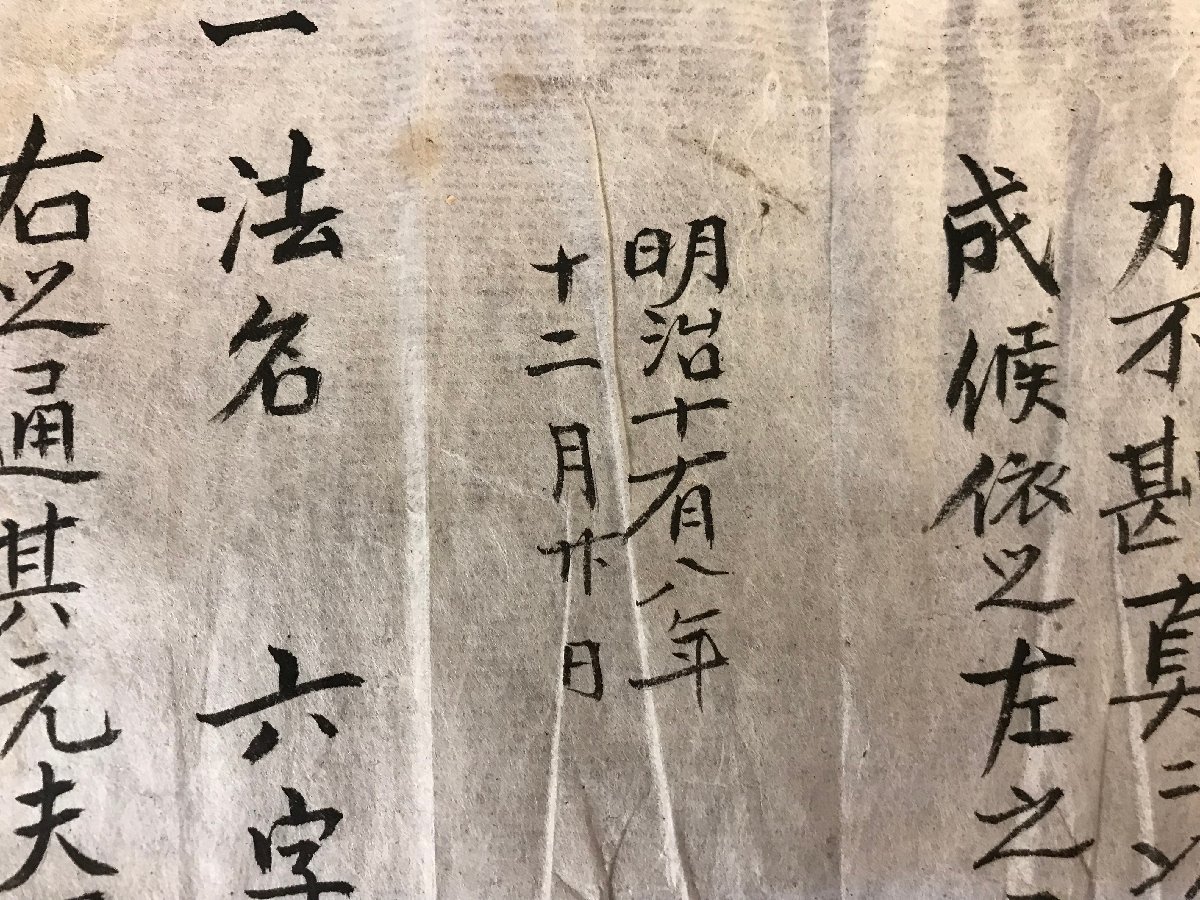 力不甚真ニ
成候依之左之
明治十有八年
十二月廿日
一法名 六字
右之通其元夫